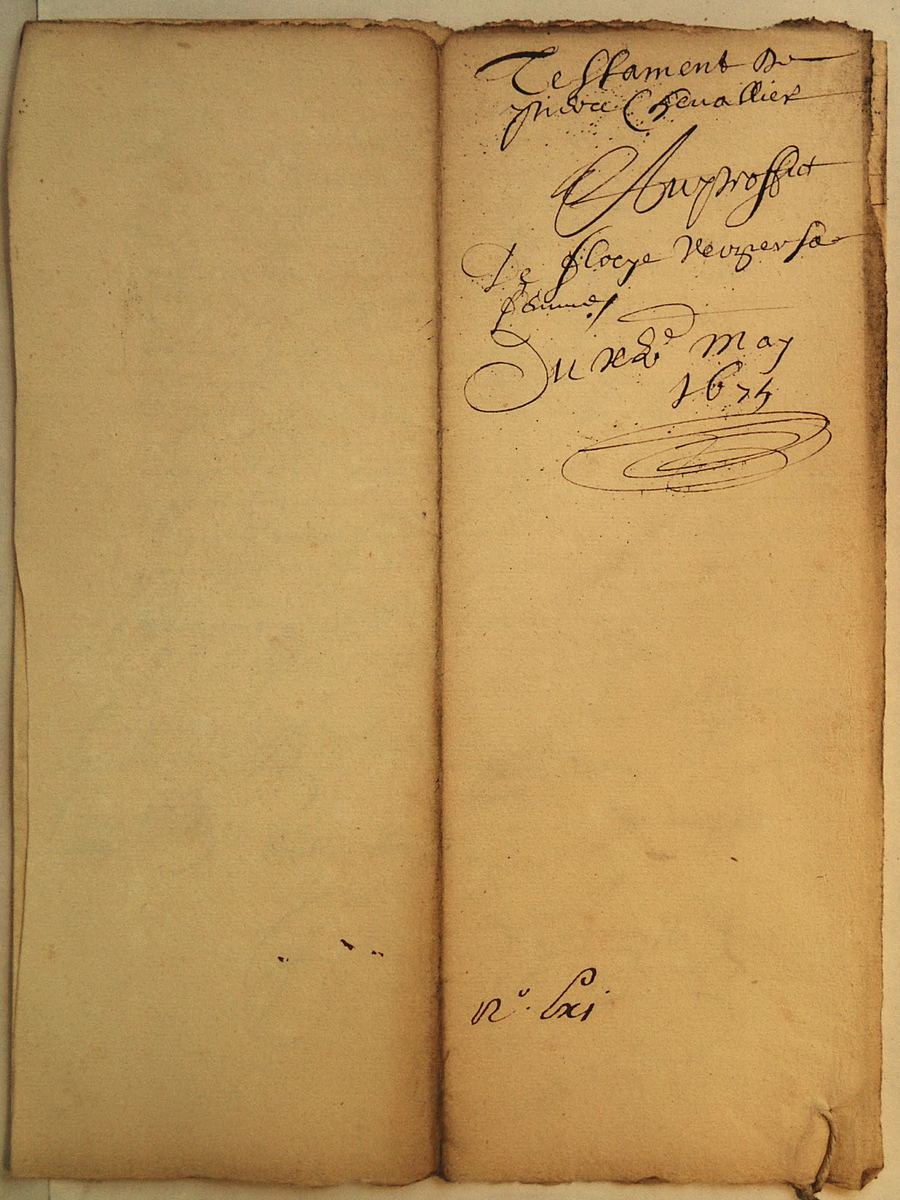 Testament de
pierre Chevallier
Au proffict
De floeye Verger sa
femme
Du xxe may
1675
No. lxi